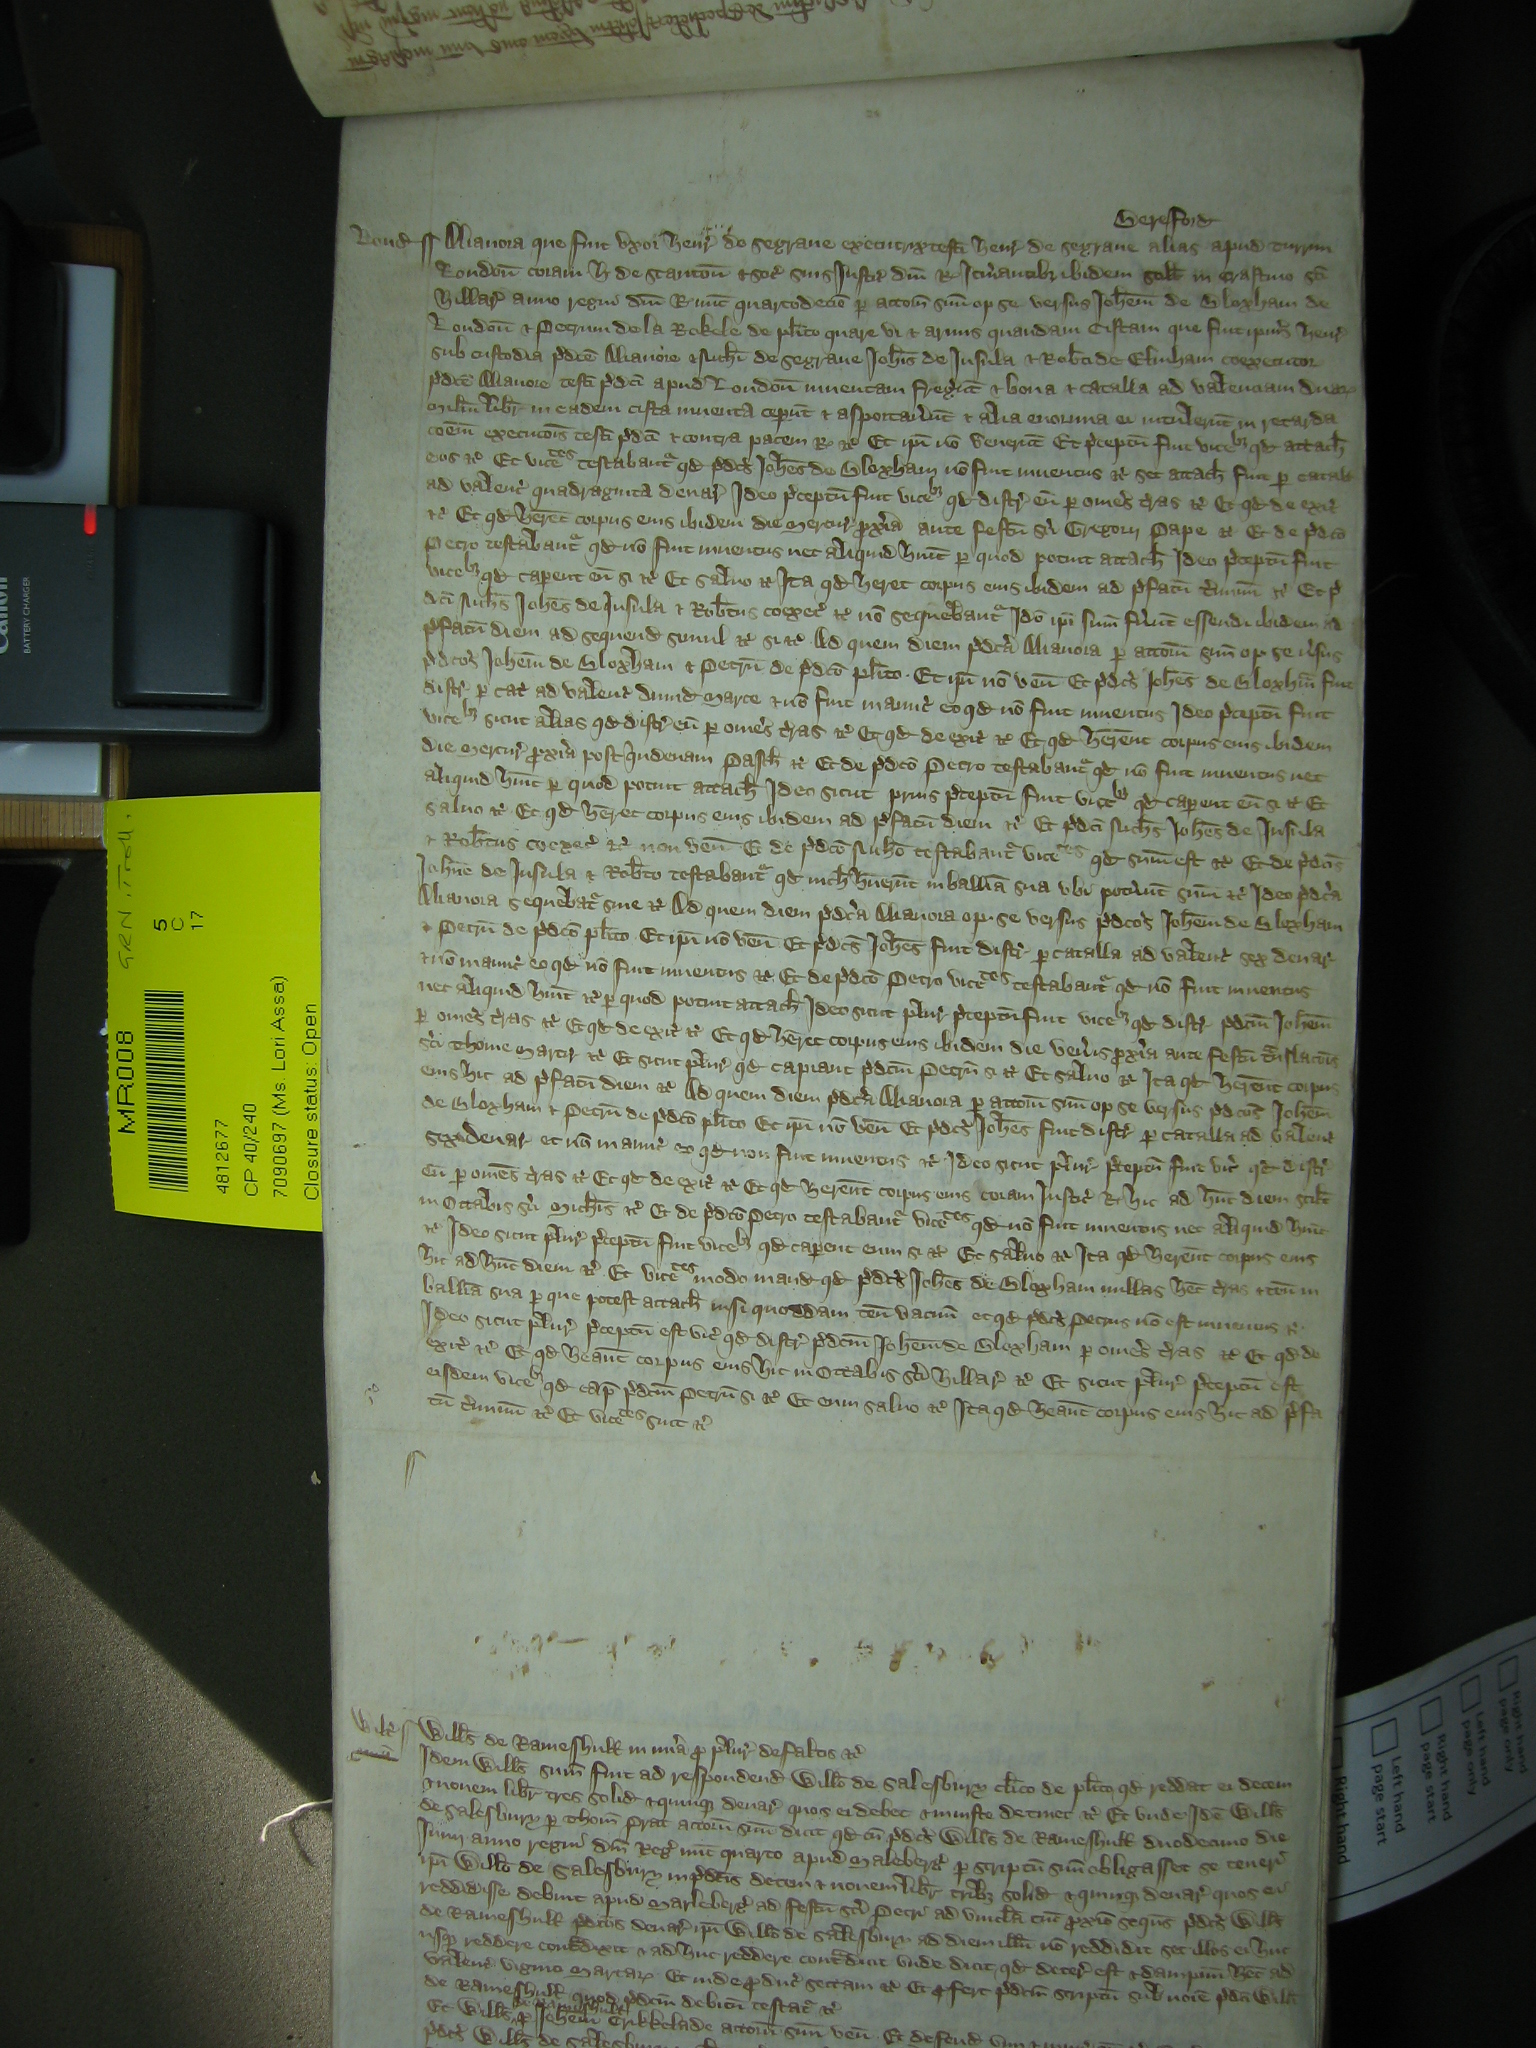 Beresford
Lond ss Alianora que fuit uxor Henr de Segrave executrix testi Henr de Segrave alias apud Turrim
London coram H de Stanton & soc suis Justic dni R Itinantibz ibidem scilt in Crastino sci
Hillar anno regni dni R nunc quartodecio p attorn suu op se versus Johem de Bloxham de
London & Petrum de la Rokele de plito quare vi & armis quandam Cistam que fuit ipius Henr
sub custodia pdce Alianore & Nichi de Segrave Johis de Insula & Robti de Elmham coexecutor
pdce Alianore testi pdci apud London inventam fregunt & bona & catalla ad valenciam duar
milm libr in eadem cista inventa cepunt & asportavunt & alia enormia ei intulerut in retarda
coem execucois testi pdci & contra pacem R &c Et ipi no venerut Et pceptu fuit vicebz qd attach
eos &c Et viceces testabantr qd pdcs Johes de Bloxham no fuit inventus &c set attach fuit p catall
ad valenc quadraginta denar Ideo pceptu fuit vicebz qd distr eu p omes tras &c Et qd de exit
&c Et qd herent corpus eius ibidem die mercur pxia ante festu sci Gregorii Pape &c Et de pdco
Petro testabantr qd no fuit inventus nec aliquid huit p quod potuit attach Ideo pceptu fuit
vicebz qd caperent eu si &c Et salvo &c Ita qd heret corpus eius ibidem ad pfatu tminu &c Et p
dci Nichs Johes de Insula & Robtus coexec &c no sequebantr Ido ipi sum fuunt essendi ibidem ad
pfatu diem ad sequend simul &c si &c Ad quem diem pdca Alianora p attorn suu op se vsus
pdcos Johem de Bloxham & Petru de pdco plito Et ipi no ven Et pdcs Johes de Bloxham fuit
distr p cat ad valenc dimid marce & no fuit manuc eo qd no fuit inventus Ideo pceptu fuit
vicebz sicut alias qd distr eu p omes tras &c Et qd de exit &c Et qd herent corpus eius ibidem
die mercur pxia post Quindenam Pasch &c Et de pdco Petro testabantr qd no fuit inventus nec
aliquid huit p quod potuit attach Ideo sicut prius pceptu fuit vicebz qd caperent eu si &c Et
salvo &c Et qd heret corpus eius ibidem ad pfatu diem &c Et pdci Nichs Johes de Insula
& Robtus coexec &c non ven Et de pdco Nicho testabantr viceces qd sum est &c Et de pdcis
Johne de Insula & Robto testabantr qd nich huerunt in ballia sua ubi potunt sum &c Ideo pdca
Alianora sequebatr sine &c Ad quem diem pdca Alianora op se versus pdcos Johem de Bloxham
& Petru de pdco plito Et ipi no ven Et pdcs Johes fuit distr p catalla ad valenc sex denar
& no manuc eo qd no fuit inventus &c Et de pdco Petro viceces testabantr qd no fuit inventus
nec aliquid huit &c p quod potuit attach Ideo sicut plur pceptu fuit vicebz qd distr pdcm Johem
p omes tras &c Et qd de exit &c Et qd heret corpus eius ibidem die venis pxia ante festu translacois
sci Thome martir &c Et sicut plur qd capiant pdcm Petru si &c Et salvo &c Ita qd herent corpus
eius hic ad pfatu diem &c Ad quem diem pdca Alianora p attorn suu op se versus pdcos Johem
de Bloxham & Petru de pdco plito Et ipi no ven Et pdcs Johes fuit distr p catalla ad valenc
sex denar et no manuc eo qd non fuit inventus &c Ideo sicut plur pceptu fuit vic qd distr
eu p omes tras &c Et qd de exit &c Et qd herent corpus eius coram Justic R hic ad hunc diem scilt
in Octabis sci Michis &c Et de pdco Petro testabantr viceces qd no fuit inventus nec aliquid huit
&c Ideo sicut plur pceptu fuit vicebz qd caperent eum si &c Et salvo &c Ita qd herent corpus eius
hic ad hunc diem &c Et viceces modo mand qd pdcs Johes de Bloxham nullas het tras & ten in
ballia sua p que potest attach nisi quoddam ten vacuu et qd pdcs Petrus no est inventus &c
Ideo sicut plur pceptu est vic qd distr pdcm Johem de Bloxham p omes tras &c Et qd de
exit &c Et qd heant corpus eius hic in Octabis sci Hillar &c Et sicut plur pceptu est
eisdem vicebz qd cap pdcm Petru si &c Et eum salvo &c Ita qd heant corpus eius hic ad pfa
tu tminu &c Et viceces sint &c
Wiltes ss Wills de Rameshull in mia p plur defaltis &c
mia
Idem Wills sum fuit ad respondend Willo de Salesbury clico de plito qd reddat ei decem
& novem libr tres solid & quinqz denar quos ei debet & iniuste detinet &c Et unde Ide Wills
de Salesbury p Thom Prat attorn suu dicit qd cu pdcs Wills de Rameshull duodecimo die
Junii anno regni dni Reg nunc quarto apud Maleberg p scriptu suu obligasset se teneri
ipi Willo de Salesbury in pdcis decem & novem libr tribz solid & quinqz denar quos ei
reddidisse debuit apud Marleberg ad festu sci Petri ad vincla tuc pxio sequens pdcs Wills
de Rameshull pdcos denar ipi Willo de Salesbury ad diem illu no reddidit set illos ei huc
usqz reddere contdixit & adhuc reddere contdicit unde dicit qd detior est & dampnu het ad
valenc viginti marcar Et inde pduc sectam &c Et pfert pdcm scriptu sub noie pdci Willi
de Rameshull quod pdcm debitu testatr &c
Et Wills de Rameshull p Johem Crikkelade attorn suu ven Et defend vim & iniur
pdcs Wills de Salesbury
Canon
BATTERY CHARGER
GRN ITEM.
MR008
5
C
17
4812677
CP 40/240
7090697 (Ms. Lori Assa)
Closure status: Open
Right hand
page only
Left hand
page only
Right hand
page start
Left hand
page start
Right hand